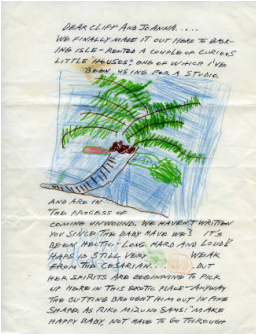 DEAR CLIFF AND JOANNA.....
WE FINALLY MADE IT OUT HERE TO DARK-
ING ISLE - RENTED A COUPLE OF CURIOUS
LITTLE HOUSES, ONE OF WHICH I'VE
BEEN USING FOR A STUDIO.
AND ARE IN
THE PROCESS OF
COMING UNWOUND. WE HAVEN'T WRITTEN
YOU SINCE THE BABY HAVE WE? IT'S
BEEN HECTIC! LONG HARD AND LOUD!
IS STILL VERY WEAK
FROM THE CESARIAN.... BUT
HER SPIRITS ARE BEGINNING TO PICK
UP HERE IN THIS EXOTIC PLACE - ANYWAY
THE CUTTING BROUGHT HIM OUT IN FINE
SHAPE. AS RIKO MIZUNO SAYS: "MAKE
HAPPY BABY, NOT HAVE TO GO THROUGH